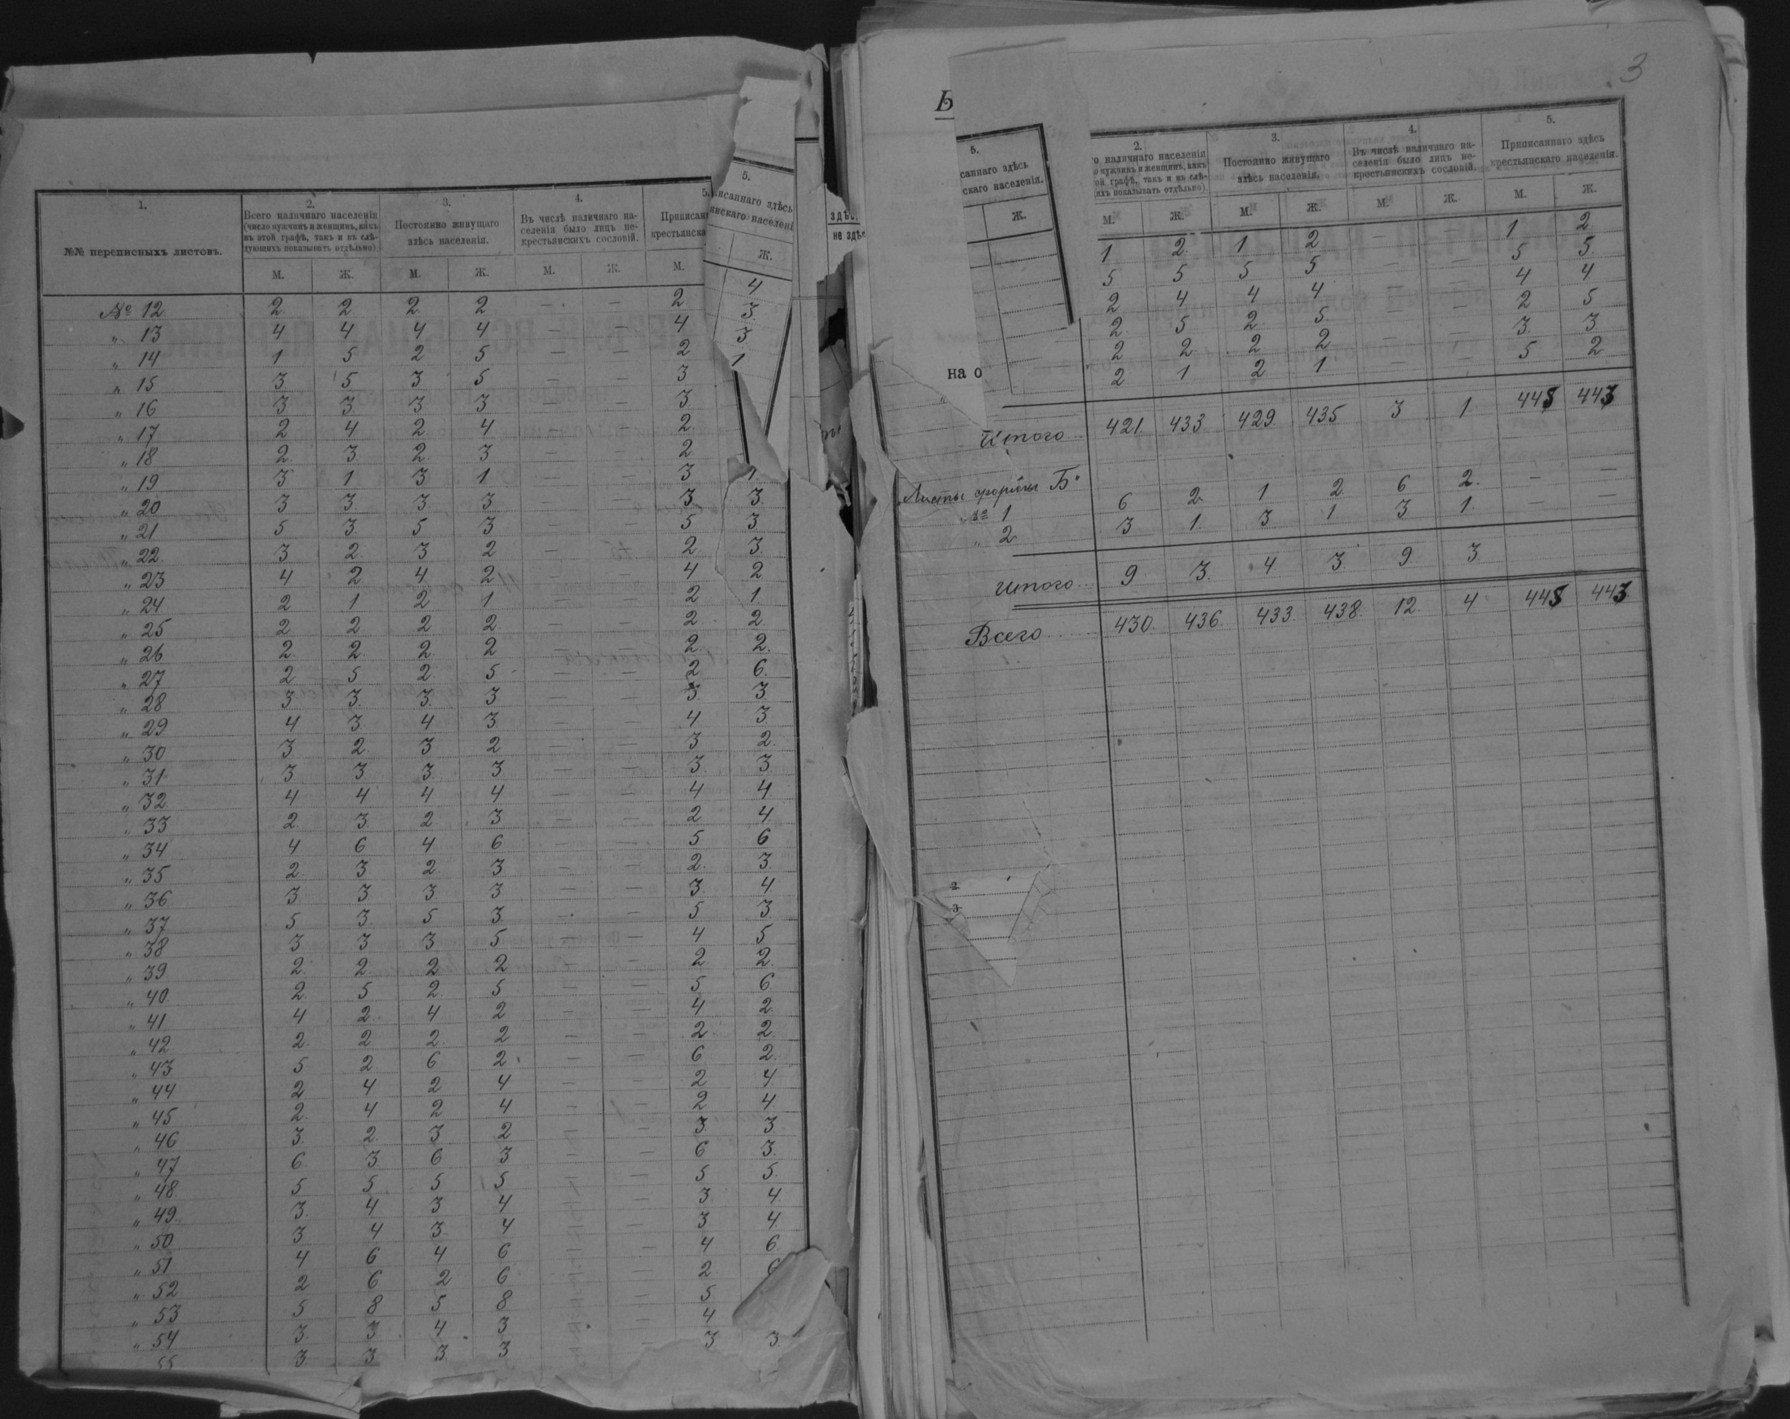 1. 2. 3. 4. 5.
№№ переписныхъ листовъ.
Всего наличнаго населенія
(число мужчинъ и женщинъ, какъ
въ этой графѣ, такъ и въ слѣ-
дующихъ показывать отдѣльно)
Постоянно живущаго
здѣсь населенія.
Въ числѣ наличнаго на-
селенія было лицъ не-
крестьянскихъ сословій.
М. Ж. М. Ж. М. Ж. М.
5.
Ж.
4
3
3
1
№ 12 2 2 2 2 – – 2
„ 13 4 4 4 4 – – 4
„ 14 1 5 2 5 – – 2
„ 15 3 5 3 5 – – 3
„ 16 3 3 3 3 – – 3
„ 17 2 4 2 4 – – 2
„ 18 2 3 2 3 – – 2
„ 19 3 1 3 1 – – 3 1
„ 20 3 3 3 3 – – 3 3
„ 21 5 3 5 3 – – 5 3
„ 22 3 2 3 2 – – 2 3
„ 23 4 2 4 2 – – 4 2
„ 24 2 1 2 1 – – 2 1
„ 25 2 2 2 2 – – 2 2
„ 26 2 2 2 2 – – 2 2
„ 27 2 5 2 5 – – 2 6
„ 28 3 3 3 3 – – 3 3
„ 29 4 3 4 3 – – 4 3
„ 30 3 2 3 2 – – 3 2
„ 31 3 3 3 3 – – 3 3
„ 32 4 4 4 4 – – 4 4
„ 33 2 3 2 3 – – 2 4
„ 34 4 6 4 6 – – 5 6
„ 35 2 3 2 3 – – 2 3
„ 36 3 3 3 3 – – 3 4
„ 37 5 3 5 3 – – 5 3
„ 38 3 3 3 5 – – 4 5
„ 39 2 2 2 2 – – 2 2
„ 40 2 5 2 5 – – 5 6
„ 41 4 2 4 2 – – 4 2
„ 42 2 2 2 2 – – 2 2
„ 43 5 2 6 2 – – 6 2
„ 44 2 4 2 4 – – 2 4
„ 45 2 4 2 4 – – 2 4
„ 46 3 2 3 2 – – 3 3
„ 47 6 3 6 3 – – 6 3
„ 48 5 5 5 5 – – 5 5
„ 49 3 4 3 4 – – 3 4
„ 50 3 4 3 4 – – 3 4
„ 51 4 6 4 6 – – 4 6
„ 52 2 6 2 6 – – 2
„ 53 5 8 5 8 – – 5
„ 54 3 3 4 3 – – 4
55 3 3 3 3 – – 3 3
3
Ж.
на о
2. 3. 4. 5.
наличнаго населенія
Постоянно живущаго
здѣсь населенія.
Въ числѣ наличнаго на-
селенія было лицъ не-
крестьянскихъ сословій.
Приписаннаго здѣсь
крестьянскаго населенія.
М. Ж. М. Ж. М. Ж. М. Ж.
1 2 1 2 – – 1 2
5 5 5 5 – – 5 5
2 4 4 4 – – 4 4
2 5 2 5 – – 2 5
2 2 2 2 – – 3 3
2 1 2 1 – – 5 2
Итого 421 433 429 435 3 1 445 443
Листы формы Б.
№ 1 6 2 1 2 6 2 – –
„ 2 3 1 3 1 3 1
Итого 9 3 4 3 9 3
Всего 430 436 433 438 12 4 445 443
2
3